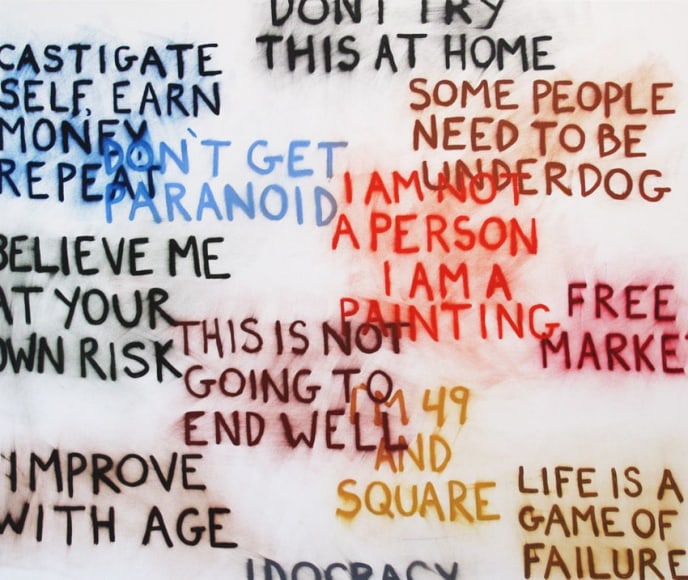 DON'T TRY
THIS AT HOME
CASTIGATE
SELF, EARN
MONEY
REPEAT
SOME PEOPLE
NEED TO BE
UNDERDOG
DON'T GET
PARANOID
I AM NOT
A PERSON
I AM A
PAINTING
BELIEVE ME
AT YOUR
OWN RISK
FREE
MARKET
THIS IS NOT
GOING TO
END WELL
I'M 49
AND
SQUARE
I IMPROVE
WITH AGE
LIFE IS A
GAME OF
FAILURE
IDOCRACY